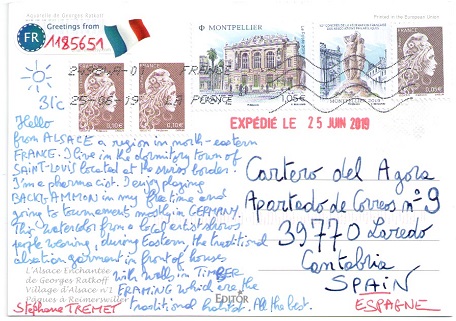 Aquarelle de Georges Ratkoff
Printed in the European Union
Greetings from
FR
1185651
MONTPELLIER
LA POSTE 2018
FRANCE
1,05€
MONTPELLIER 2019
FRANCE
0,10€
0,10€
0,10€
24882A-0
FRANCE
25-06-19
LA POSTE
31°c
EXPÉDIÉ LE 25 JUIN 2019
Hello
from ALSACE a region in north-eastern
FRANCE. I live in the dormitory town of
SAINT-LOUIS located at the swiss border.
I'm a pharmacist. I enjoy playing
BACKGAMMON in my free time and
going to tournaments mostly in GERMANY.
This watercolor from a local artist shows
people wearing, during Eastern the traditional
alsatian garment in front of houses
with walls in TIMBER
FRAMING which are the
traditional habitat. All the best.
Stéphane TREMET
L'Alsace Enchantée
de Georges Ratkoff
Village d'Alsace n°1
Pâques à Reumerswiller
EDITOR
Cartero del Agora
Apartado de Correos n°9
39770 Laredo
Cantabria
SPAIN
ESPAGNE